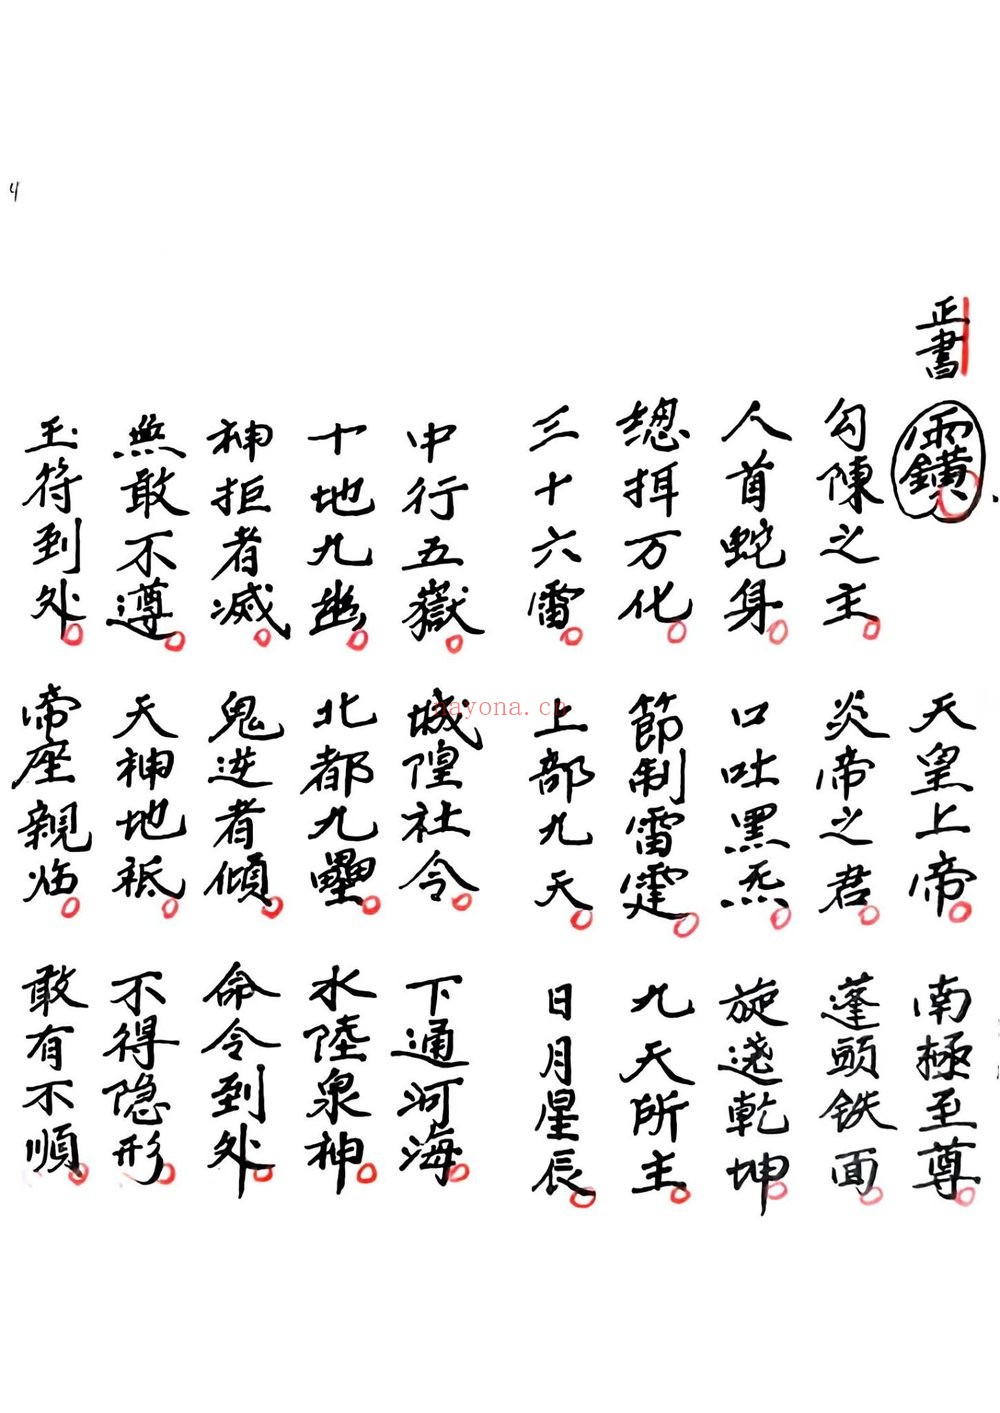 4
正書
天皇上帝 南極至尊
勾陳之主 炎帝之君 蓬頭鉄面
人首蛇身 口吐黑炁 旋遶乾坤
總押万化 節制雷霆 九天所主
三十六雷 上部九天 日月星辰
中行五嶽 城隍社令 下通河海
十地九幽 北都九壘 水陸泉神
神拒者滅 鬼逆者傾 命令到处
無敢不遵 天神地祇 不得隐形
玉符到处 帝座親临 敢有不順
nayona.cn